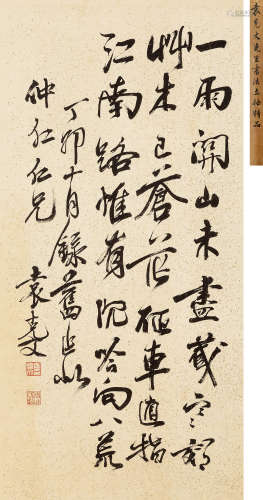 袁克文先生書法立軸精品
一雨關山未盡藏寒郊
艸木已蒼茫車直指
江南路惟有沉唫向八荒
丁卯十月錄舊作似
仲仁仁兄
袁克文